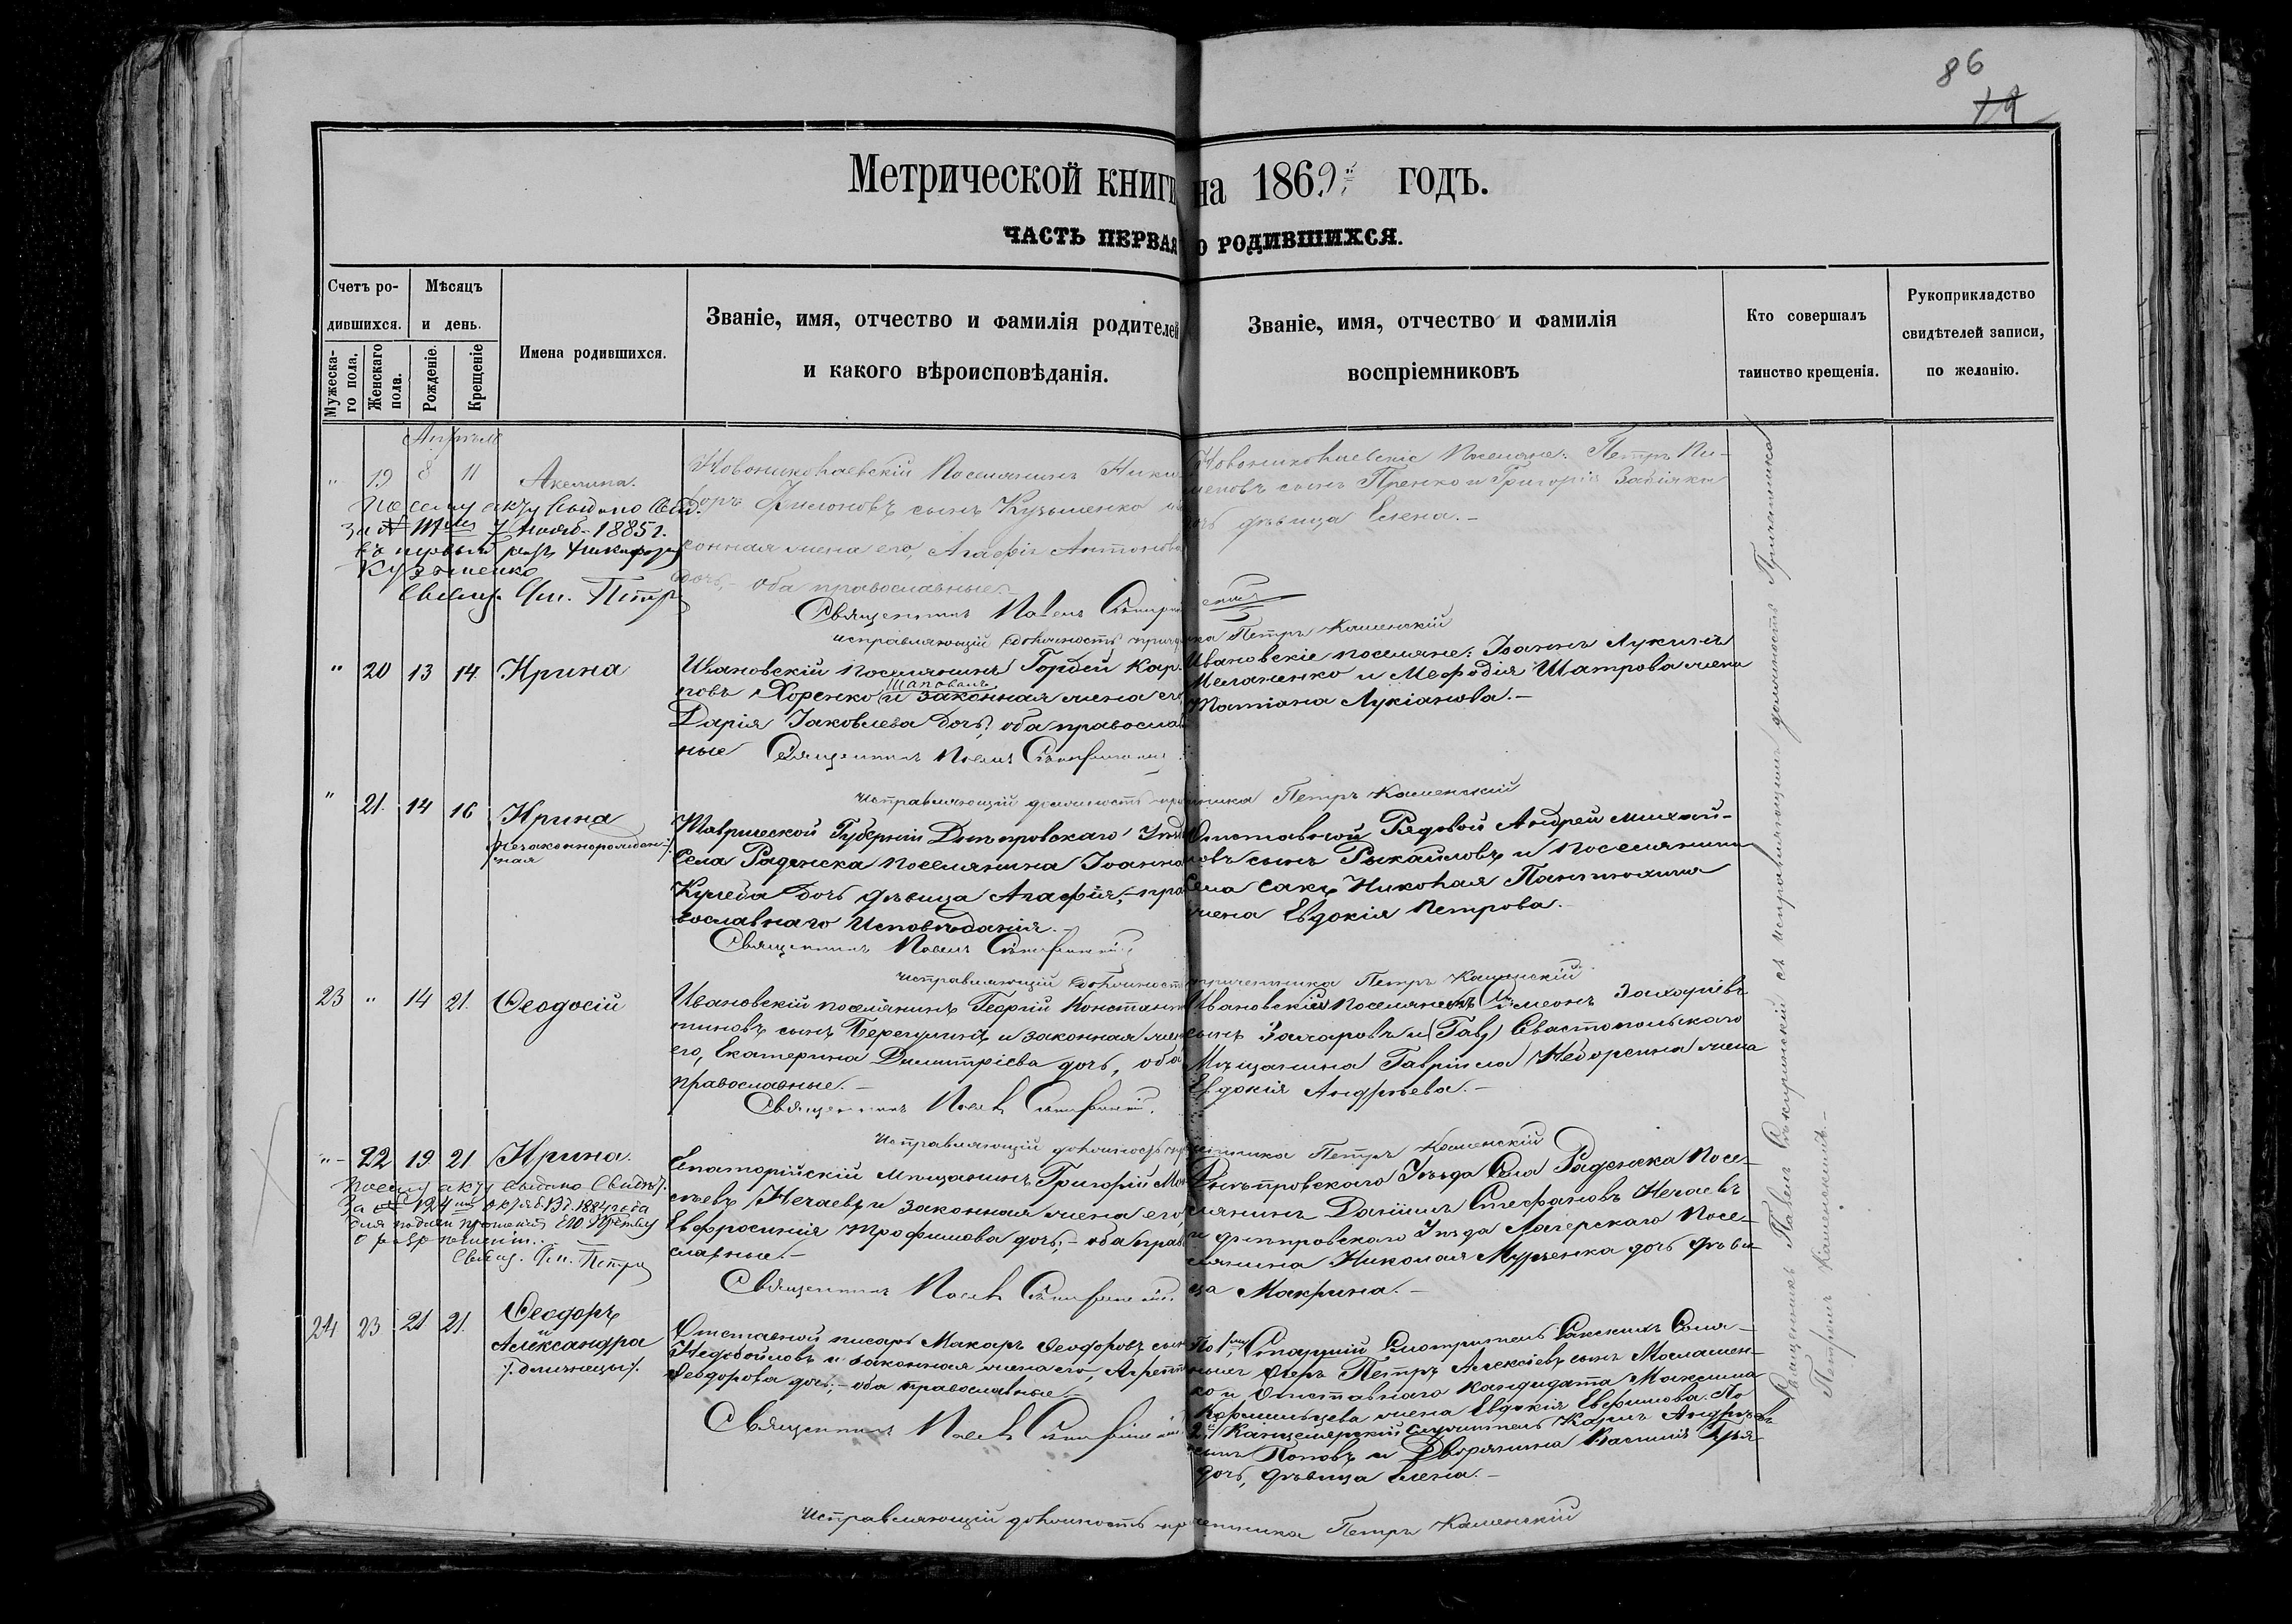 86
19
Метрической книги на 1869й годъ.
ЧАСТЬ ПЕРВАЯ О РОДИВШИХСЯ.
Счетъ ро-
дившихся.
Мужеска-
го пола.
Женскаго
пола.
Мѣсяцъ
и день.
Рожденіе.
Крещеніе
Имена родившихся.
Званіе, имя, отчество и фамилія родителей
и какого вѣроисповѣданія.
Званіе, имя, отчество и фамилія
воспріемниковъ
Кто совершалъ
таинство крещенія.
Рукоприкладство
свидѣтелей записи,
по желанію.
Апрѣль
" 19 8 11 Акелина.
По сему акту выдано Свид.
за № 111 7 Нояб. 1885 г.
въ первый разъ Никифору
Кузьменко
Свящ. Петръ
Новониколаевскій Поселянинъ Ники
форъ Филоновъ сынъ Кузьменко и
конная жена его Агафія Антонова
дочь, – оба православные. –
Новониколаевскіе Поселяне: Петръ Пи-
меновъ сынъ Пренко и Григорія Забіяки
дочь дѣвица Елена. –
Священникъ Павелъ
исправляющій должность причетника Петръ Каменскій
" 20 13 14 Ирина
Ивановскій поселянинъ Гордей Кар-
повъ Хоренко Шаповалъ и законная жена его
Дарія Іаковлева дочь, оба православ
ные
Ивановскіе поселяне: Іоаннъ Лукинъ
Меланенко и Мефодія Шатрова жена
Татіана Лукіанова. –
Священникъ Павелъ
Исправляющій должность причетника Петръ Каменскій
" 21. 14 16 Ирина
незаконнорожден-
ная
Таврической Губерніи Днѣпровскаго Уѣзда
Села Раденска поселянина Іоанна
Кулеба дочь дѣвица Агафія, – пра
вославнаго Исповѣданія. –
Отставной Рядовой Андрей Михай-
ловъ сынъ Рыкайловъ и поселянина
Села Сакъ Николая Пантюхина
жена Евдокія Петрова. –
Священникъ Павелъ
исправляющій должность причетника Петръ Каменскій
23 " 14 21. Ѳеодосій
Ивановскій поселянинъ Георгій Констан
тиновъ сынъ Берегулинъ и законная жена
его, Екатерина Димитріева дочь, оба
православные. –
Ивановскій Поселянинъ Симеонъ Захаріевъ
сынъ Захаровъ и (Гав) Севастопольскаго
Мѣщанина Гавріила Недорезина жена
Евдокія Андреева. –
Священникъ Павелъ
Исправляющій должность причетника Петръ Каменскій
" 22 19. 21 Ирина.
По сему акту выдано Свидѣт.
за № 124 октяб. 13 д. 1884 года
для подачи прошенія
о разрѣшеніи.
Свящ. Петръ
Евпаторійскій Мѣщанинъ Григорій Мои
сѣевъ Нечаевъ и законная жена его,
Евфросинія Трофимова дочь, – оба право
славные. –
Днѣпровскаго Уѣзда Села Раденска Посе-
лянинъ Даніилъ Стефановъ Нечаевъ
и Днепровскаго Уѣзда Лагерскаго Посе-
лянина Николая Мурзенка дочь дѣви
ца Макрина. –
Священникъ Павелъ
24 23 21 21. Ѳеодоръ
и
Александра
/: близнецы :/.
Отставной писарь Макаръ Ѳеодоровъ сынъ
Недобойловъ и законная жена его, Агрепина
Ѳеодорова дочь; – оба православные. –
По 1му Старшій Смотритель Сакскихъ Соля-
ныхъ Озеръ Петръ Алексіевъ сынъ Маламен-
ко и Отставнаго Кандидата Максима
Кормильцева жена Евдокія Евфимова. По
2й Канцелярскій служитель Карпъ Андреевъ
сынъ Поповъ и Дворянина Василія
дочь, дѣвица Елена. –
Священникъ Павелъ
Исправляющій должность причетника Петръ Каменскій
Священникъ Павелъ съ исправляющимъ должность Причетника
Петромъ Каменскимъ –